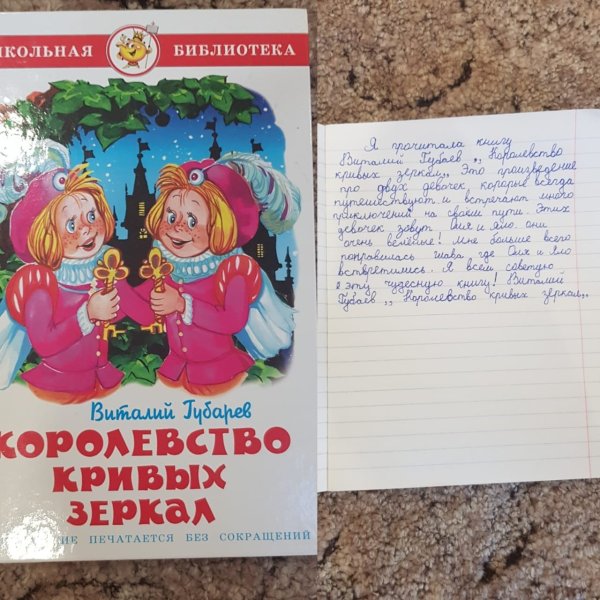 ШКОЛЬНАЯ БИБЛИОТЕКА
Виталий Губарев
КОРОЛЕВСТВО
КРИВЫХ
ЗЕРКАЛ
ИЕ ПЕЧАТАЕТСЯ БЕЗ СОКРАЩЕНИЙ
Я прочитала книгу
Виталий Губаев ,, Королевство
кривых зеркал,, Это произведение
про двух девочек которые всегда
путешествуют и встречают много
приключений на своём пути. Этих
девочек зовут Оля и Яло. они
очень весёлые! Мне больше всего
понравилась глава где Оля и Яло
встретились. Я всем советую
эту чудесную книгу! Виталий
Губаев ,, Королевство кривых зеркал,,